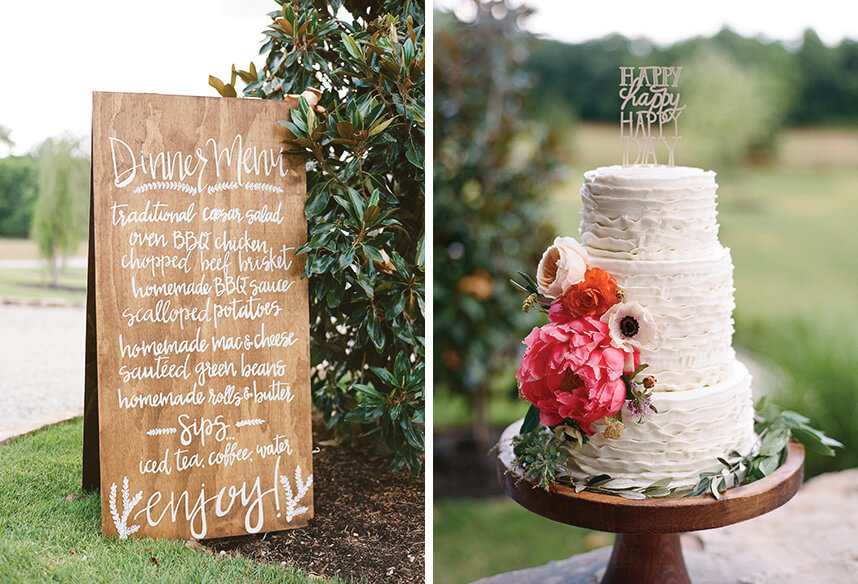 Dinner Menu
traditional caesar salad
oven BBQ chicken
chopped beef brisket
homemade BBQ sauce
scalloped potatoes
homemade mac & cheese
sautéed green beans
homemade rolls & butter
sips...
iced tea, coffee, water
enjoy!
HAPPY
happy
HAPPY
DAY